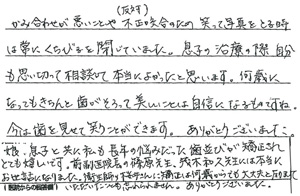 (反対)
かみ合わせが悪いことや不正咬合のため 笑って写真をとる時
は常にくちびるを閉じていました。息子の治療の際 自分
も思い切って相談して本当によかったと思います。何歳に
なってもきちんと歯がそろって美しいことは自信になるものですね。
今は歯を見せて笑うことができます。ありがとうございました。
娘・息子と共に私も長年の悩みだった歯並びが矯正され
とても嬉しいです。前副医院長の篠原先生、残木和久先生には本当に
お世話になりました。衛生師の皆さんに